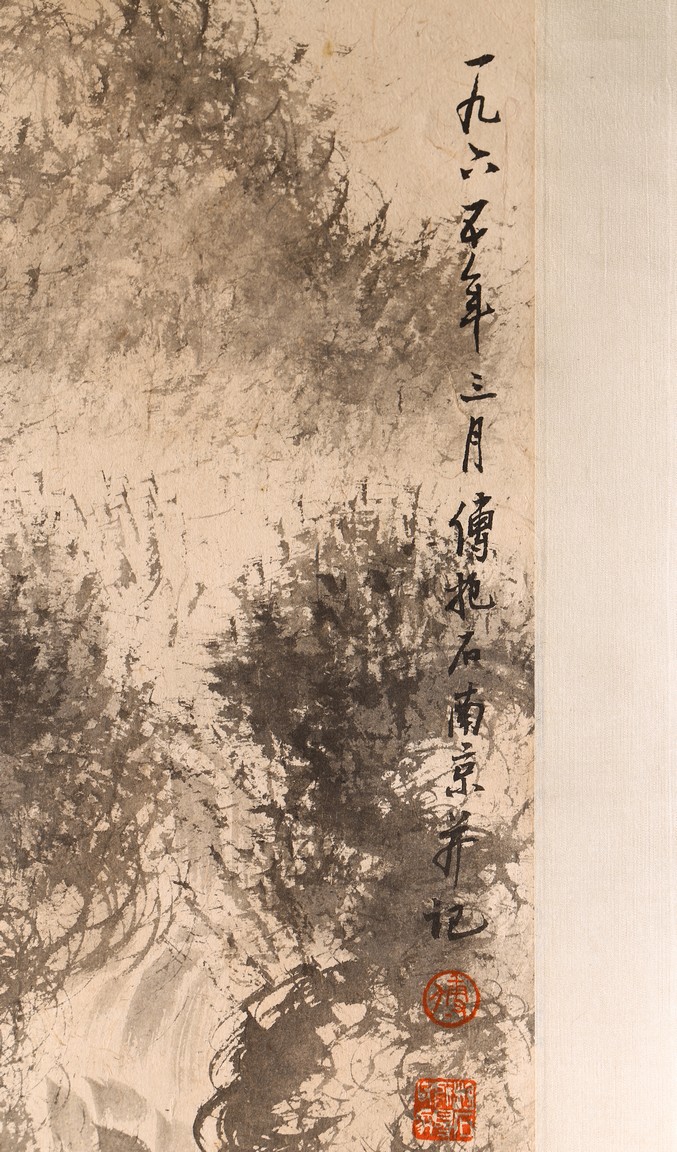 一九六五年三月傅抱石南京并记
傅